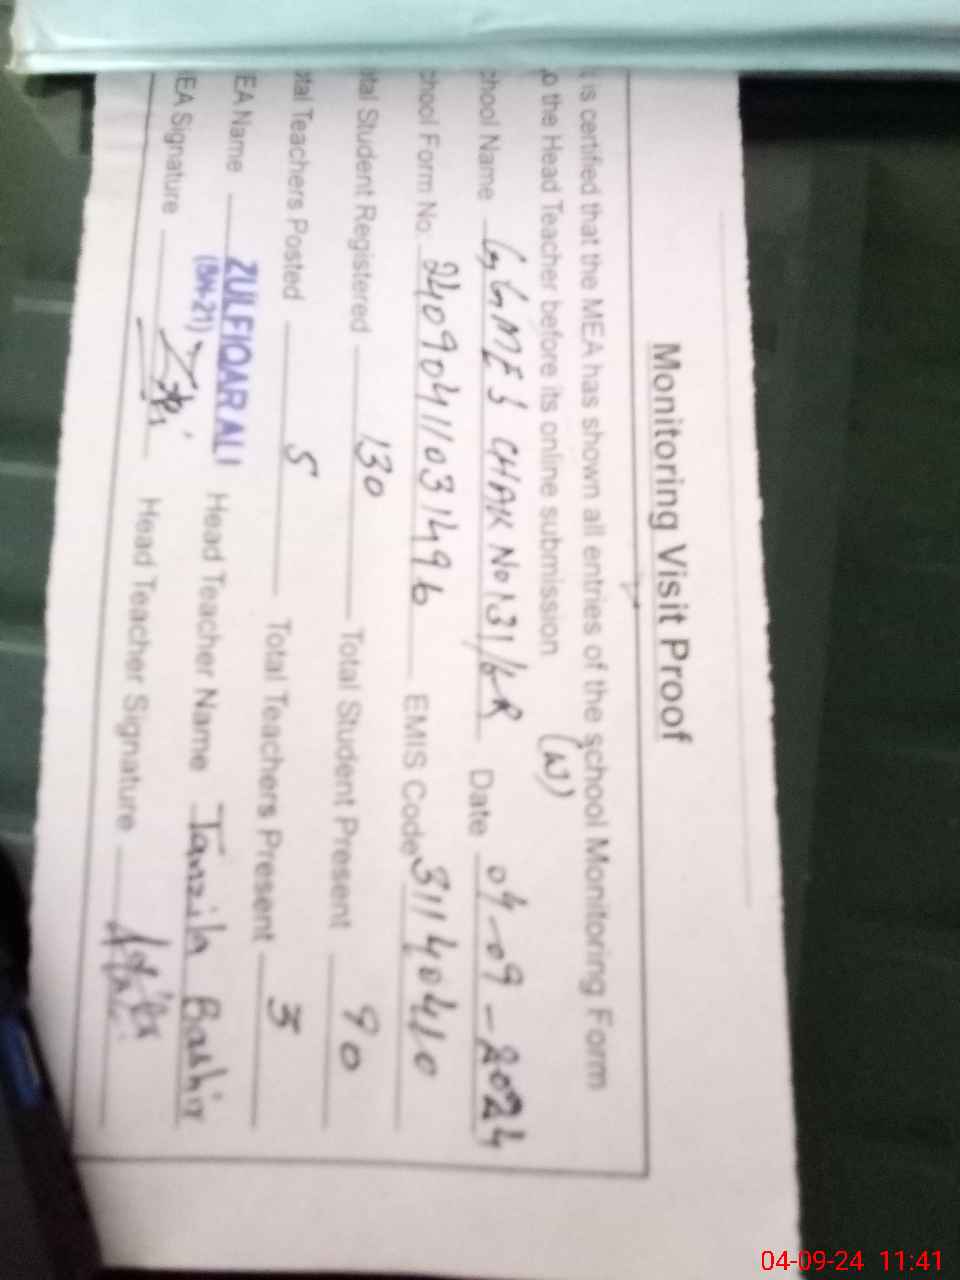 Monitoring Visit Proof
t is certified that the MEA has shown all entries of the school Monitoring Form
o the Head Teacher before its online submission
(W)
chool Name GGMES CHAK No 131/6R Date 04-09-2024
chool Form No. 24090411031496 EMIS Code 31140410
otal Student Registered 130 Total Student Present 90
otal Teachers Posted 5 Total Teachers Present 3
EA Name ZULFIQAR ALI Head Teacher Name Tanzila Bashir
(BN-21)
EA Signature Head Teacher Signature
04-09-24 11:41